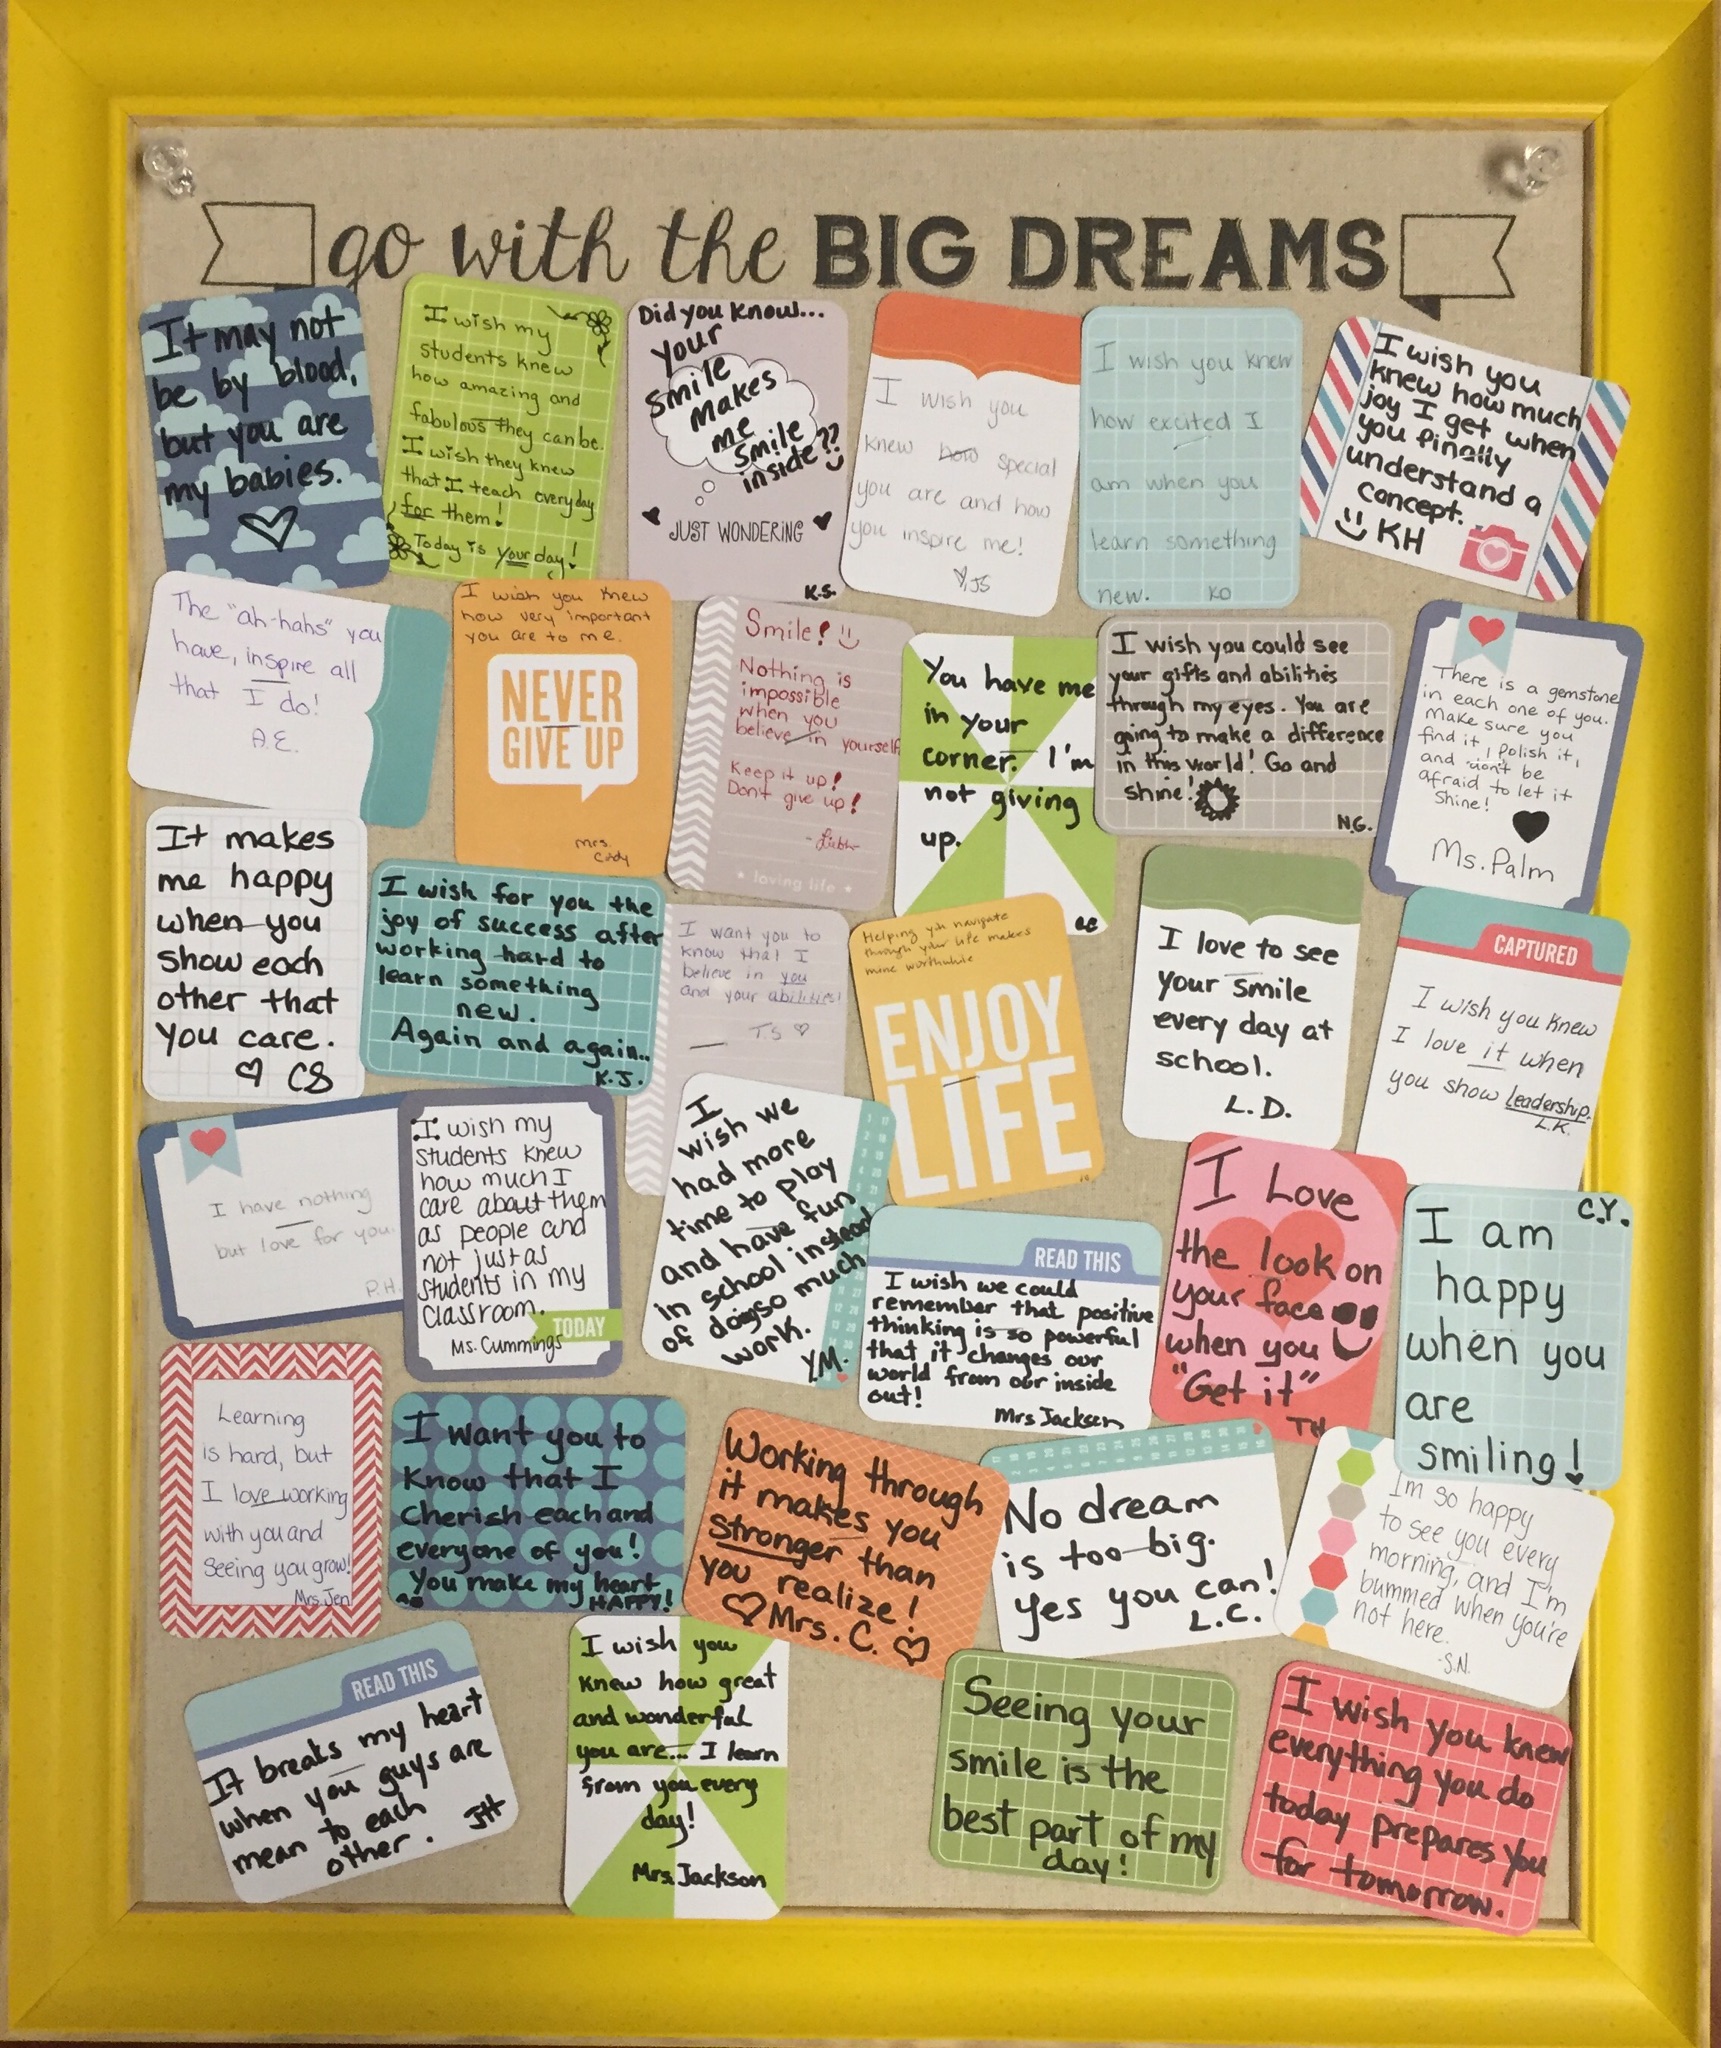 go with the BIG DREAMS
It may not
be by blood,
but you are
my babies.
I wish my
students knew
how amazing and
fabulous they can be.
I wish they knew
that I teach everyday
for them!
Today is your day!
Did you know...
your
smile
makes
me
smile
inside??
JUST WONDERING
K.S.
I wish you
knew how special
you are and how
you inspire me!
JS
I wish you knew
how excited I
am when you
learn something
new. KO
I wish you
knew how much
joy I get when
you finally
understand a
concept.
KH
The "ah-hahs" you
have, inspire all
that I do!
A.E.
I wish you knew
how very important
you are to me.
NEVER
GIVE UP
Mrs.
Cody
Smile!
Nothing is
impossible
when you
believe in yourself
Keep it up!
Don't give up!
loving life
You have me
in your
corner. I'm
not giving
up.
I wish you could see
your gifts and abilities
through my eyes. You are
going to make a difference
in this world! Go and
shine!
N.G.
There is a gemstone
in each one of you.
Make sure you
find it, polish it,
and don't be
afraid to let it
shine!
Ms. Palm
It makes
me happy
when you
show each
other that
you care.
CS
I wish for you the
joy of success after
working hard to
learn something
new.
Again and again..
K.J.
I want you to
know that I
believe in you
and your abilities!
TS
Helping you navigate
through your life makes
mine worthwhile
ENJOY
LIFE
I love to see
your smile
every day at
school.
L.D.
CAPTURED
I wish you knew
I love it when
you show leadership.
L.K.
I have nothing
but love for you.
P.H.
I wish my
students knew
how much I
care about them
as people and
not just as
students in my
classroom.
TODAY
Ms. Cummings
I
wish we
had more
time to play
and have fun
in school instead
of doing so much
work.
Y.M.
READ THIS
I wish we could
remember that positive
thinking is so powerful
that it changes our
world from our inside
out!
Mrs Jackson
I Love
the look on
your face
when you
"Get it"
TH
C.Y.
I am
happy
when you
are
smiling!
Learning
is hard, but
I love working
with you and
seeing you grow!
Mrs. Jen
I want you to
know that I
cherish each and
everyone of you!
You make my heart
HAPPY!
Working through
it makes you
stronger than
you realize!
Mrs. C.
No dream
is too big.
yes you can!
L.C.
I'm so happy
to see you every
morning, and I'm
bummed when you're
not here.
-S.N.
READ THIS
It breaks my heart
when you guys are
mean to each
other. JH
I wish you
knew how great
and wonderful
you are... I learn
from you every
day!
Mrs. Jackson
Seeing your
smile is the
best part of my
day!
I wish you knew
everything you do
today prepares you
for tomorrow.